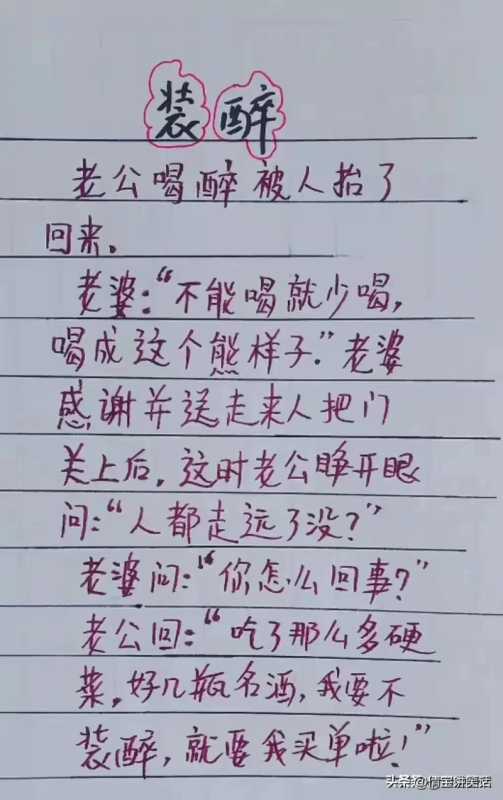 装醉
老公喝醉被人抬了
回来。
老婆：“不能喝就少喝，
喝成这个熊样子。”老婆
感谢并送走来人把门
关上后，这时老公睁开眼
问：“人都走远了没？”
老婆问：“你怎么回事？”
老公回：“吃了那么多硬
菜，好几瓶名酒，我要不
装醉，就要我买单啦！”